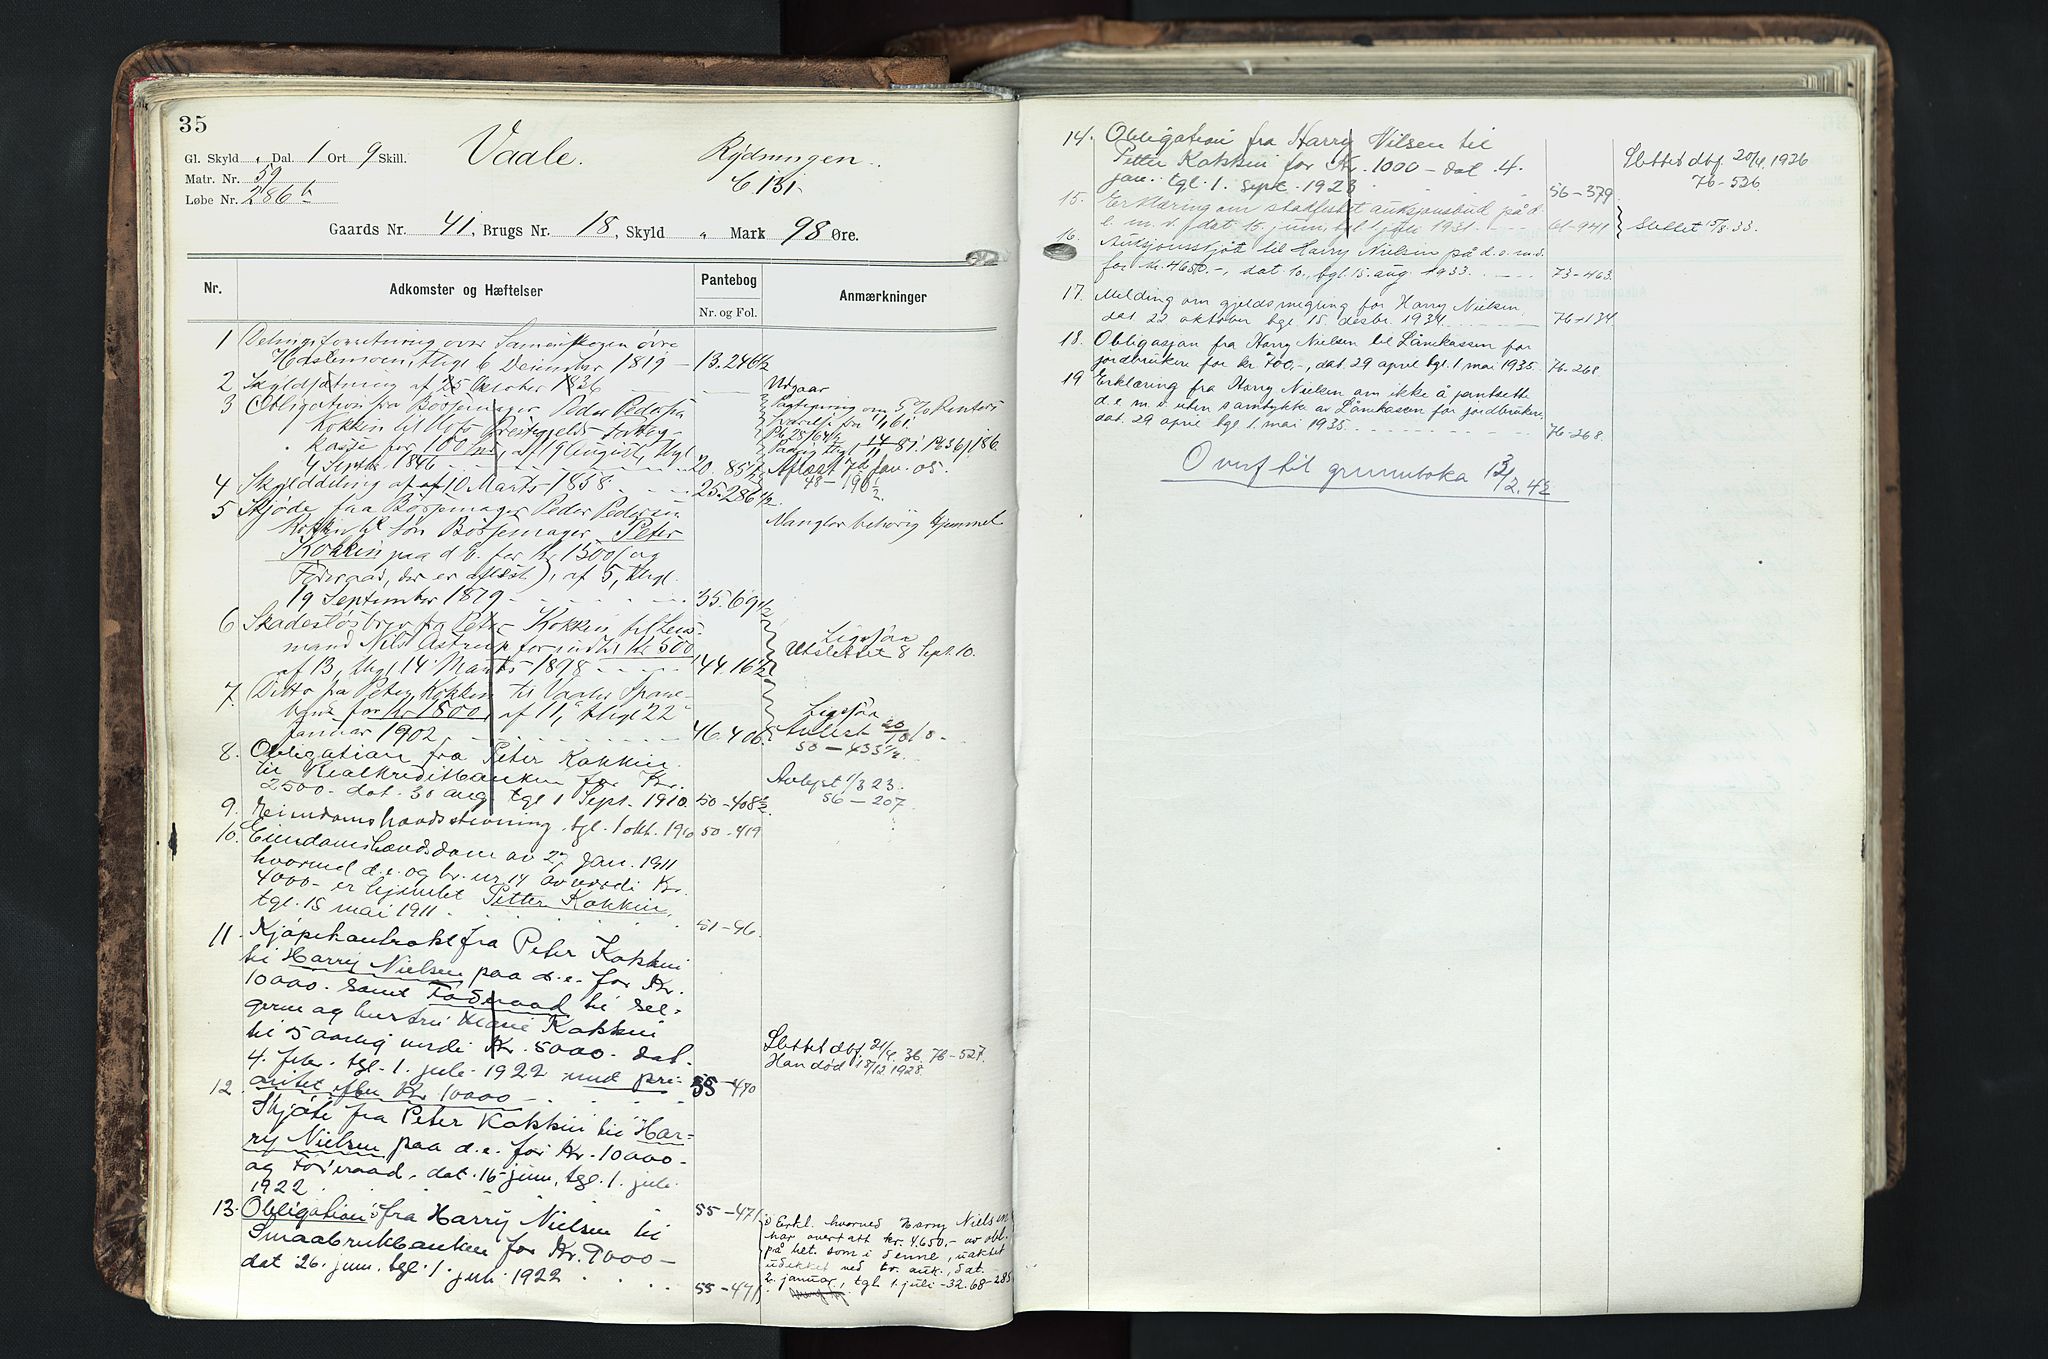 35
Gl. Skyld „ Dal. 1 Ort 9 Skill.
Vaale.
Rydningen
Matr. Nr. 59
Løbe Nr. 286 b
Gaards Nr. 41, Brugs Nr. 18, Skyld „ Mark 98 Øre.
Nr.
Adkomster og Hæftelser
Pantebog
Nr. og Fol.
Anmærkninger
1 Delingsforretning over Samenskogen øvre
thlgl 6 December 1819 — 13.246 1/2
2 Skyldsætning af 25 Oktober 1836
3 Obligation fra Bøssemager Peder Pedersen
Kokken til Hofs Præstegjelds
kasse for 100 af 19 August, thgl
4 Septbr. 1846 20. 85 1/2
Udgaar
Paategning om 5 % Renters
Svarelse fra
Aflæst 7/2 Jan. 05.
48 — 190 1/2
4 Skylddeling af 10 Marts 1858 25.286 1/2
5 Skjøde fra Bøssemager Peder Pedersen
Kokkin til Søn Bøssemager Peter
Kokken paa d. E. for Kr 1500 (og
Føderaad, der er aflæst), af 5, thgl.
19 September 1879 35.69 1/2
Mangler behørig Hjemmel
6 Skadesløsbrev fra Peter Kokkin til Lens-
mand Nils Astrup for indtil Kr 500
af 13, thgl 14 Marts 1898 44.16 1/2
Ligesaa
Utslettet 8 Sept. 10.
7 Ditto fra Peter Kokkin til Vaaler Spare-
bank for Kr 1800, af 11, thgl 22
Januar 1902 46.406
Ligesaa
Avlæst 20/10 10
50 — 435 1/2
8. Obligation fra Peter Kokkin
til Realkreditbanken for Kr.
2500 - dat. 30 aug tgl 1 Sept. 1910 50-408 1/2
Avlyst 1/3 23.
56 — 207.
9. Eiendomshævdsstevning, tgl. 1 okt. 1910 50-419
10. Eiendomshævdsdom av 27 Jan. 1911
hvorved d.e. og br. nr 14 av værdi Kr.
4000- er hjemlet Petter Kokkin,
tgl. 15 mai 1911. 51-96.
11. Kjøpekontrakt fra Peter Kokkin
til Harry Nielsen paa d.e. for Kr.
10000. samt Føderaad til sel-
geren og hustru Marie Kokkin
til 5 aarlig verdi Kr. 5000. dat.
4. febr. tgl. 1. juli 1922 med pri-
oritet efter Kr 10000 55-470
Slettet dbf. 21/4. 36. 76-527.
Han død 18/12 1928.
12. Skjøte fra Peter Kokkin til Har-
ry Nielsen paa d.e. for Kr. 10000-
og Føderaad, dat. 16 juni, tgl. 1. juli
1922 55-471
13. Obligation fra Harry Nielsen til
Smaabrukbanken for Kr. 9000—
dat 26. juni, tgl. 1. juli 1922 55-471
Erkl. hvorved Harry Nielsen
har overtatt kr. 4.650,- av obl.
på bet. som i denne, uaktet
udekket ved tv. auk., dat.
2. januar, tgl. 1. juli - 32. 68-285
14. Obligation fra Harry Nilsen til
Petter Kokkin for Kr. 1000 — dat. 4.
jan. tgl. 1. sept. 1923 56-379
Slettet dbf 20/4 1936
76-526
15. Erklæring om stadfestet auksjonsbud på d.
e. m. v. dat 15. juni, tgl 1 juli 1931. 61-941
Slettet 15/8 33.
16. Auksjonsskjøte til Harry Nielsen på d. e. m. v.
for kr. 4650.-, dat 10., tgl. 15. aug 1933. 73-463
17. Melding om gjeldsmegling for Harry Nielsen
dat 22 oktober tgl 15. desbr. 1934. 76-174
18. Obligasjon fra Harry Nielsen til Lånekassen for
jordbrukere for kr 700,-, dat. 29 april tgl. 1 mai 1935. 76-268
19 Erklæring fra Harry Nielsen om ikke å pantsette
d. e. m. v. uten samtykke av Lånekassen for jordbrukere,
dat. 29 april tgl 1. mai 1935. 76-268.
Overf til grunnboka